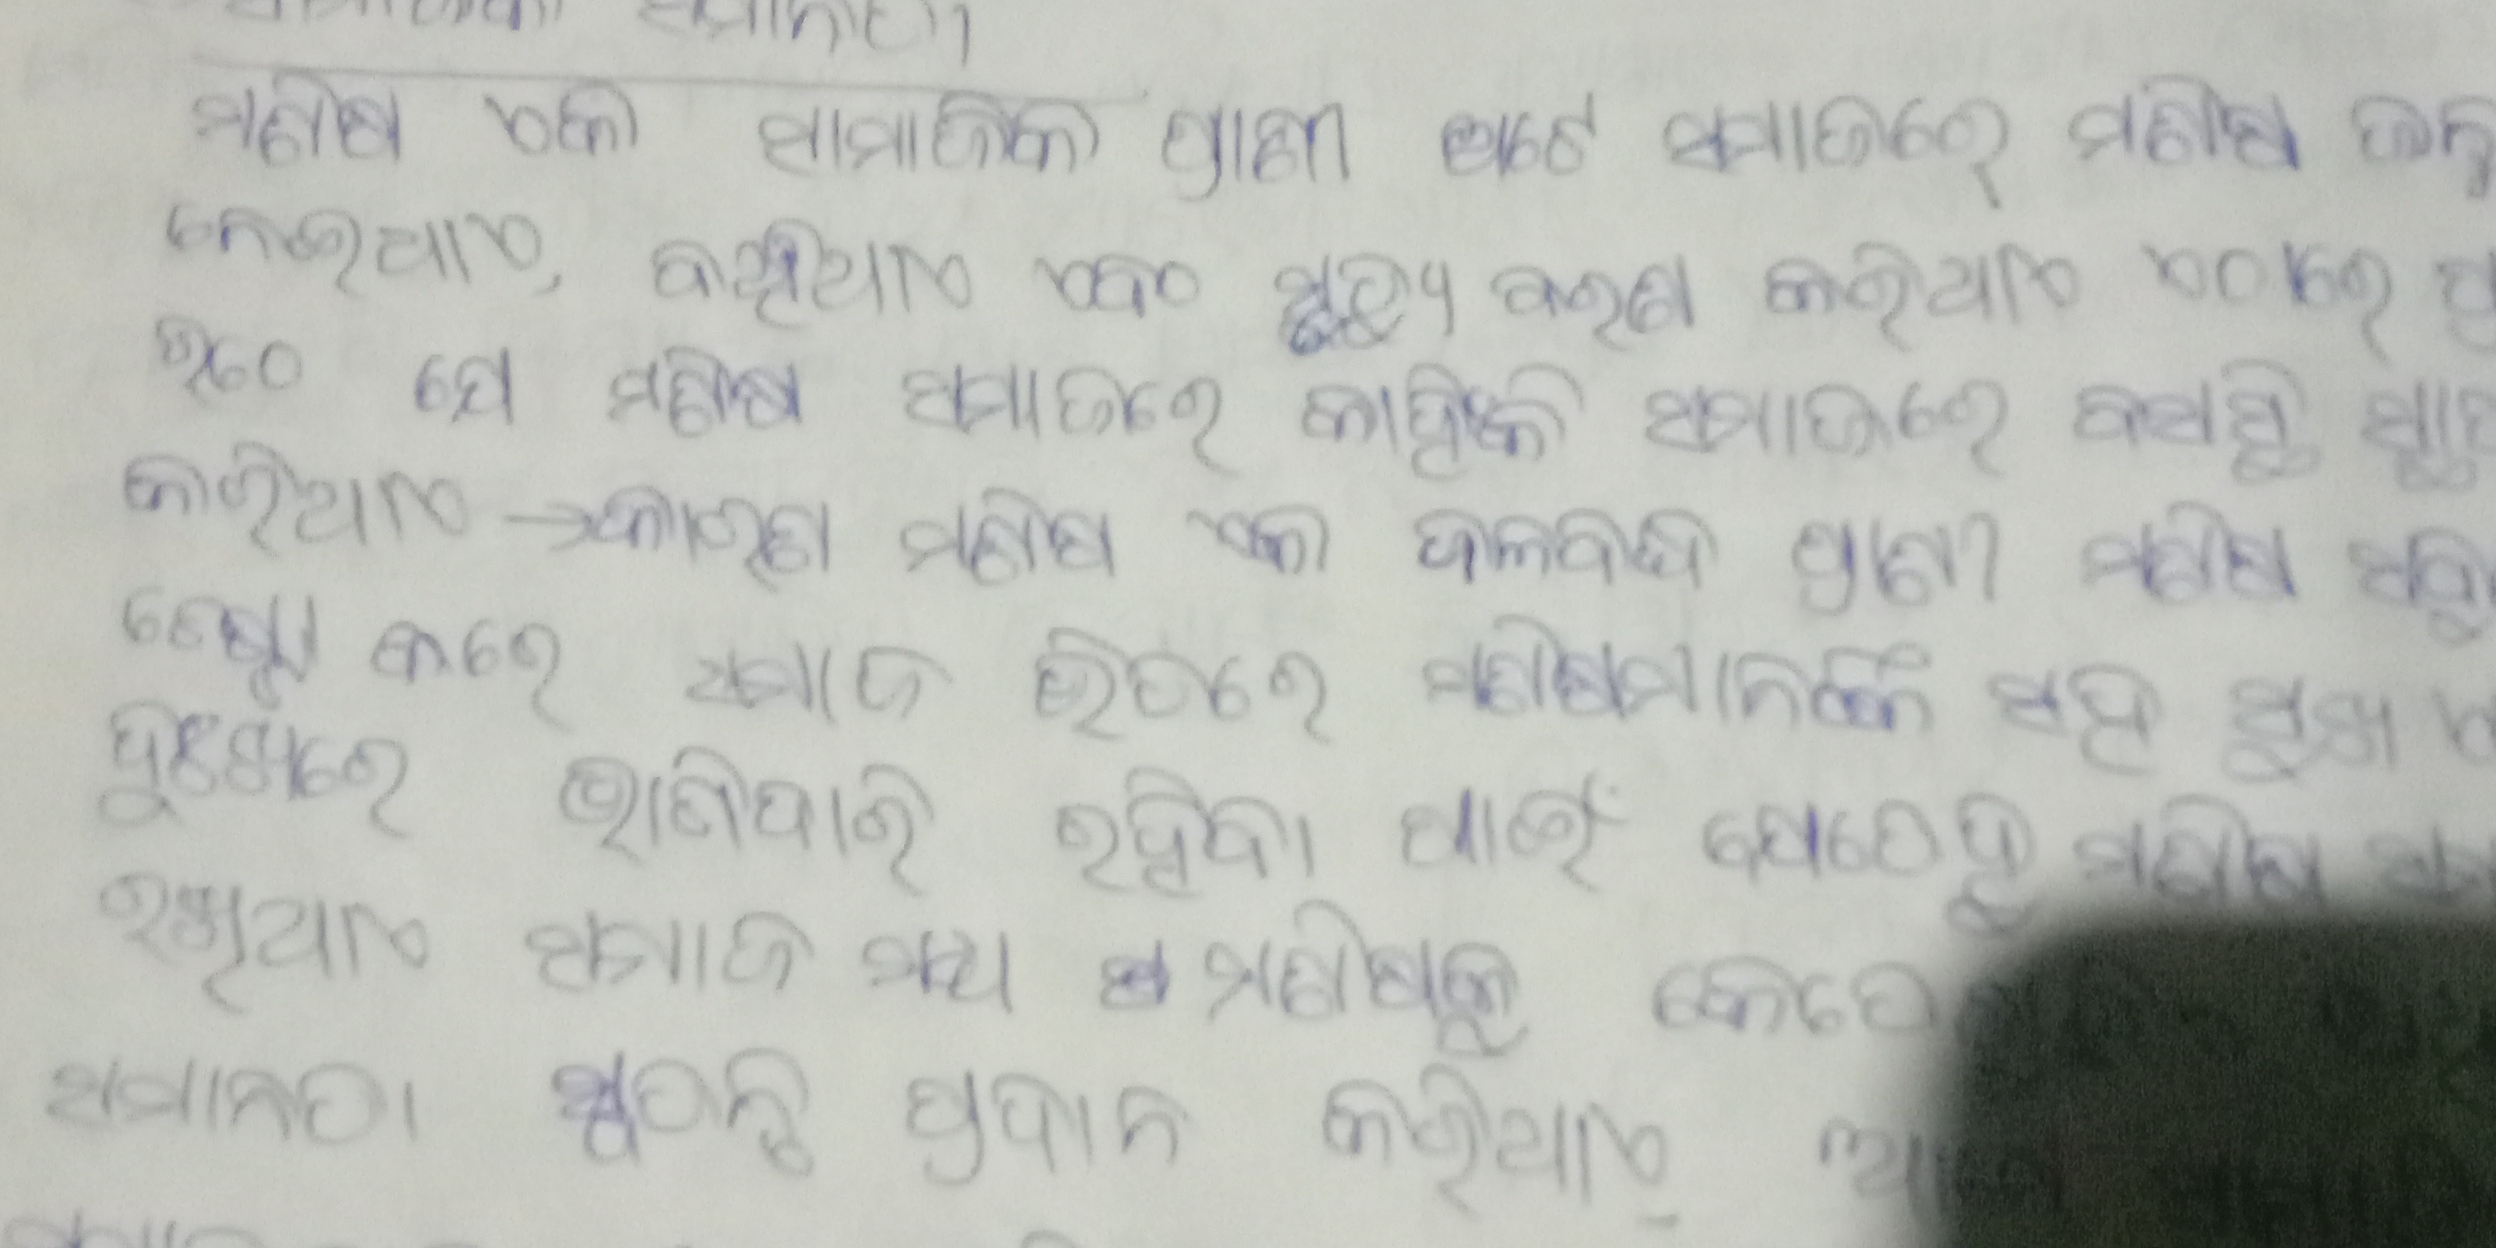 ସମାନତା
ମଣିଷ ଏକ ସାମାଜିକ ପ୍ରାଣୀ ଅଟେ ସମାଜରେ ମଣିଷ
ନେଇଥାଏ, ବଞ୍ଚିଥାଏ ଏବଂ ମୃତ୍ୟୁ ବରଣ କରିଥାଏ ଏଠାରେ
ଯେ ମଣିଷ ସମାଜରେ କାହିଁକି ସମାଜରେ
କରିଥାଏ →କାରଣ ମଣିଷ ଏକ ଦଳବଦ୍ଧ ପ୍ରାଣୀ ମଣିଷ
ଚେଷ୍ଟା କରେ ସମାଜ ଭିତରେ ମଣିଷମାନଙ୍କ ସହ ସୁଖ
ଦୁଃଖରେ ଭାଗିଦାରି ରହିବା ପାଇଁ ଯେହେତୁ ମଣିଷ
ରଖିଥାଏ ସମାଜ ମଧ୍ୟ ମଣିଷକୁ କେତେ
ସମାନତା ପ୍ରଦାନ କରିଥାଏ